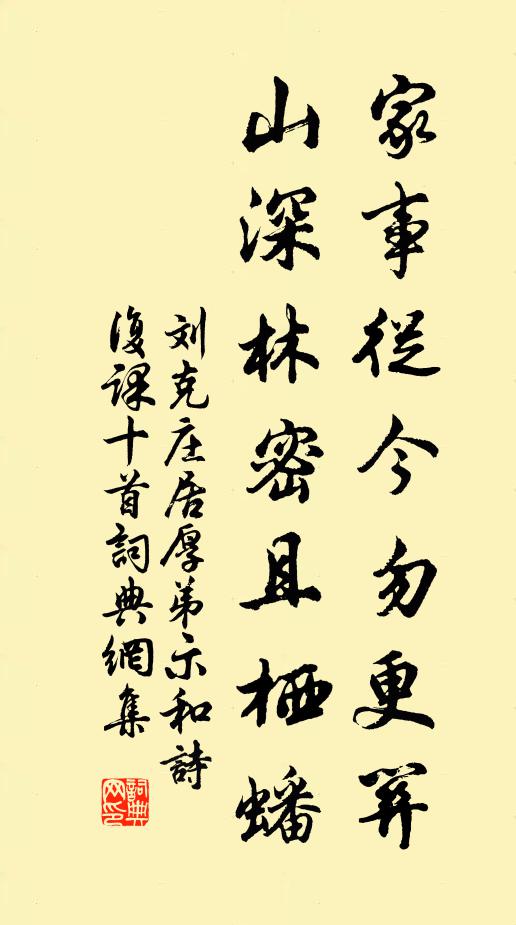 家事從今勿更関
山深林密且栖蟠
刘克庄居厚弟示和詩
復課十首詞典網集
詞典网印